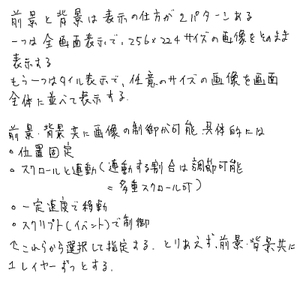 前景と背景は表示の仕方が2パターンある
一つは全画面表示で、256×224サイズの画像をそのまま
表示する
もう一つはタイル表示で、任意のサイズの画像を画面
全体に並べて表示する。
前景・背景共に画像の制御が可能 具体的には
○位置固定
○スクロールと連動(連動する割合は調節可能
=多重スクロール可)
○一定速度で移動
○スクリプト(イベント)で制御
↑これらから選択して指定する。とりあえず、前景・背景共に
1レイヤーずつとする。